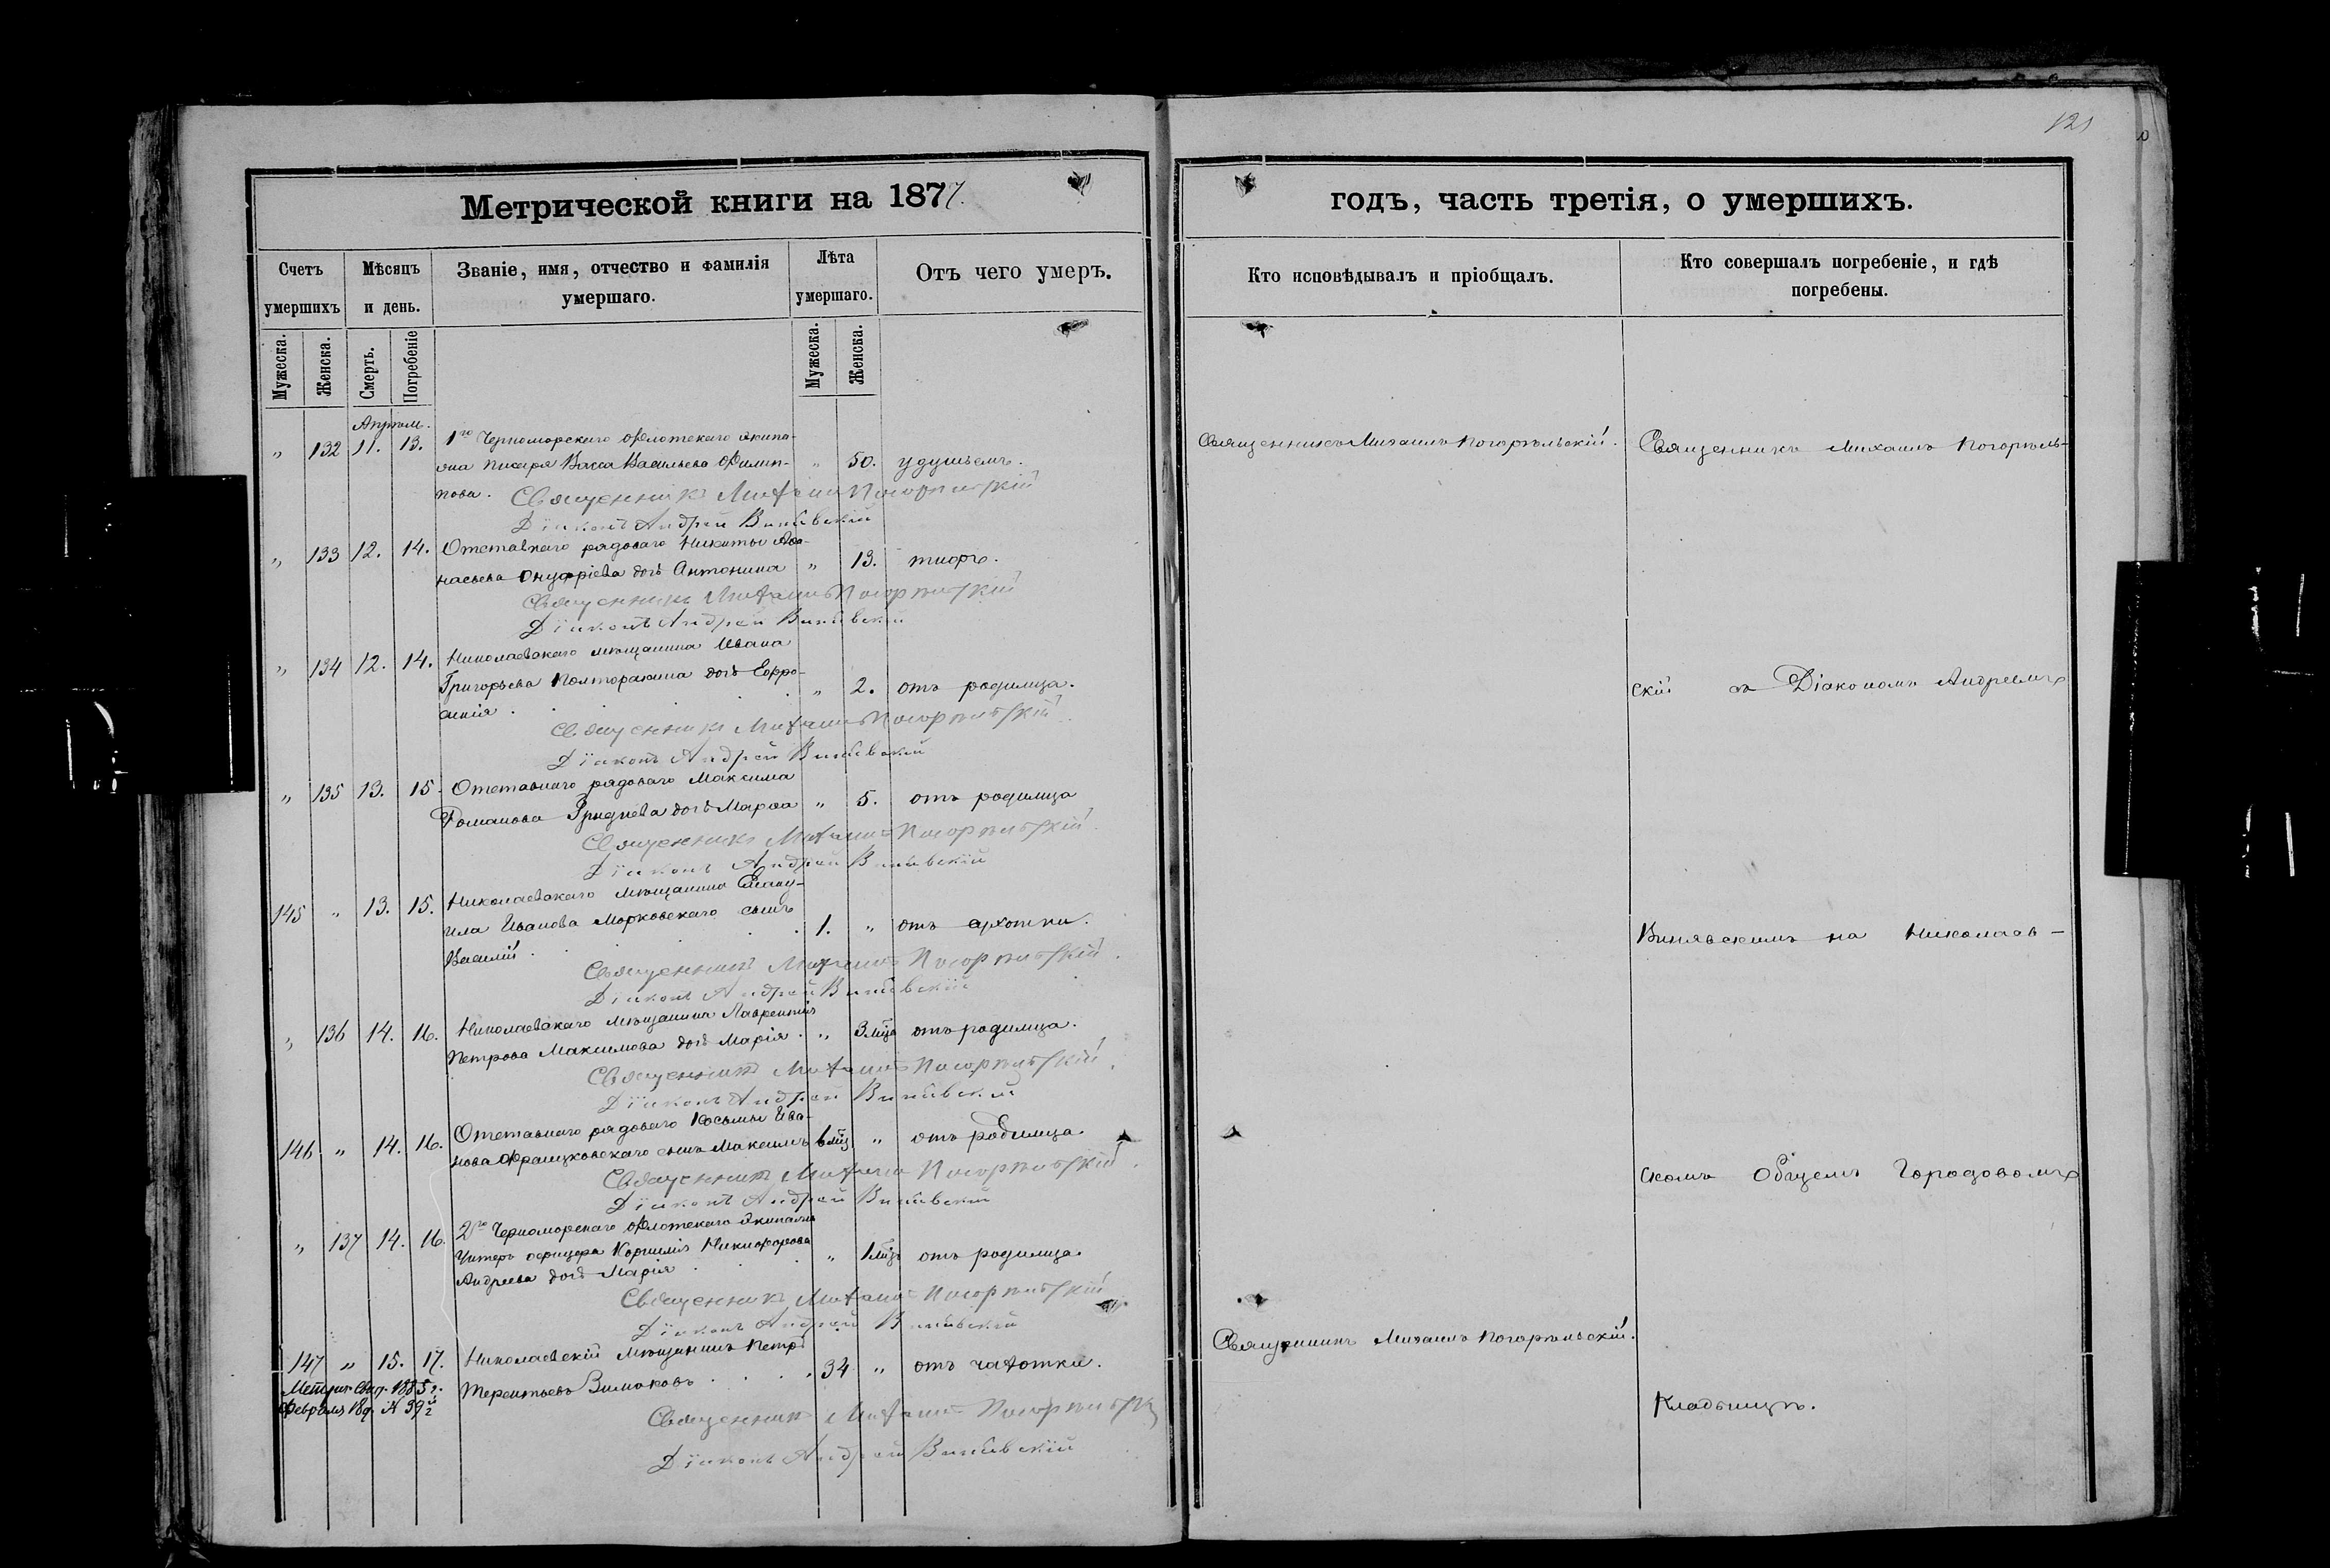 121
Метрической книги на 1877.
годъ, часть третія, о умершихъ.
Счетъ умершихъ
Мѣсяцъ и день.
Званіе, имя, отчество и фамилія умершаго.
Лѣта умершаго.
Отъ чего умеръ.
Кто исповѣдывалъ и пріобщалъ.
Кто совершалъ погребеніе, и гдѣ погребены.
Мужеска.
Женска.
Смерть.
Погребеніе
Мужеска.
Женска.
Апрѣль.
" 132 11. 13. 1го Черноморскаго Флотскаго Экипа-
жа писаря Васса Васильева Филип- " 50. удушьемъ.
пова.
Священникъ Михаилъ Погорѣльскій
Діаконъ Андрей Винявскій
" 133 12. 14. Отставнаго рядоваго Никиты Аѳа-
насьева Онуфріева дочь Антонина " 13. тифъ.
Священникъ Михаилъ Погорѣльскій
Діаконъ Андрей Винявскій
" 134 12. 14. Николаевскаго мѣщанина Ивана
Григорьева Полторакина дочь Евфро- " 2. отъ родимца.
синія
Священникъ Михаилъ Погорѣльскій
Діаконъ Андрей Винявскій
" 135 13. 15. Отставнаго рядоваго Максима
Романова Гриднева дочь Марѳа " 5. отъ родимца
Священникъ Михаилъ Погорѣльскій
Діаконъ Андрей Винявскій
145 " 13. 15. Николаевскаго мѣщанина
Иванова Морковскаго сынъ 1. " отъ сухотки.
Василій
Священникъ Михаилъ Погорѣльскій
Діаконъ Андрей Винявскій
" 136 14. 16. Николаевскаго мѣщанина Лаврентія
Петрова Максимова дочь Марія " 3 мца отъ родимца.
Священникъ Михаилъ Погорѣльскій
Діаконъ Андрей Винявскій
146 " 14. 16. Отставнаго рядоваго Косьмы Ива-
нова Францковскаго сынъ Максимъ 6 мц " отъ родимца.
Священникъ Михаилъ Погорѣльскій
Діаконъ Андрей Винявскій
" 137 14. 16. 2го Черноморскаго Флотскаго Экипажа
Унтеръ офицера Корнилія Никифорова " 1 мць отъ родимца.
Андреева дочь Марія
Священникъ Михаилъ Погорѣльскій
Діаконъ Андрей Винявскій
147 " 15. 17. Николаевскій Мѣщанинъ Петръ
Терентьевъ Зимаковъ 34 " отъ чахотки.
Метрич. свид. 1885 г.
Февраля 18 д. № 39
Священникъ Михаилъ Погорѣльскій
Діаконъ Андрей Винявскій
Священникъ Михаилъ Погорѣльскій.
Священникъ Михаилъ Погорѣльскій.
Священникъ Михаилъ Погорѣль-
скій съ Діакономъ Андреемъ
Винявскимъ на Николаев-
скомъ Общемъ Городовомъ
Кладбищѣ.